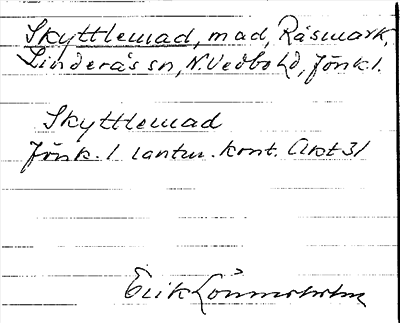 Skyttlemad, mad, Råsmark,
Linderås sn, N. Vedbo hd, Jönk. l.
Skyttlemad
Jönk. l lantm. kont. Akt 31
Erik Lönnerholm